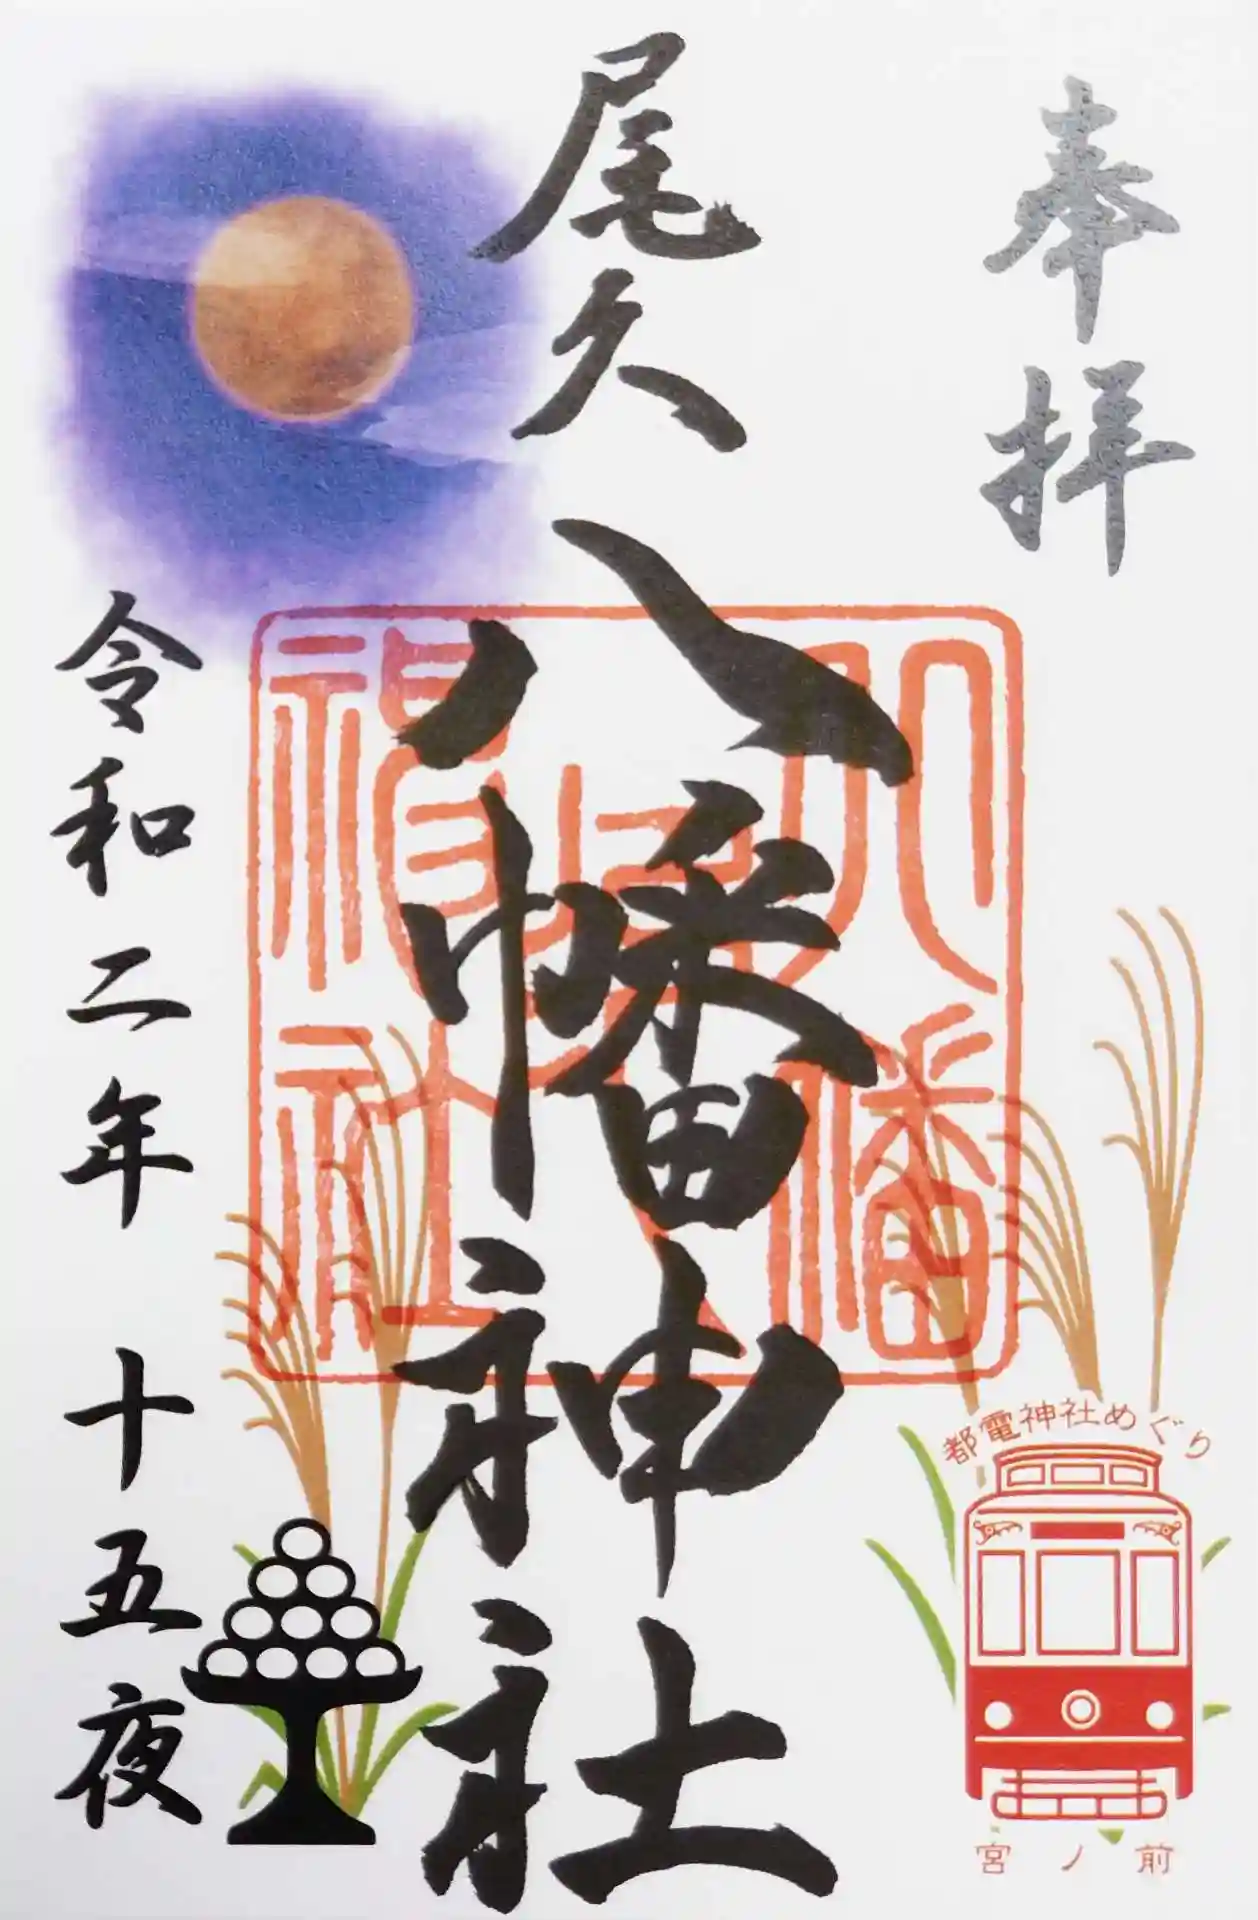 奉拝
尾久
八幡神社
八幡
神社
令和二年 十五夜
都電神社めぐり
宮ノ前